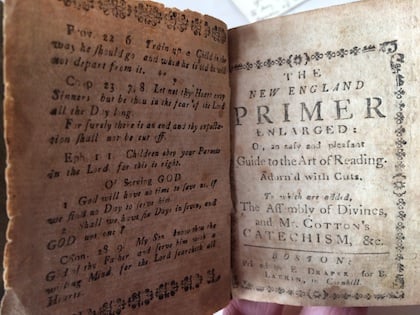 Prov. 22 6. Train up a Child in the
way he should go and when he is old he will
not depart from it.
Chap 23 7, 8. Let not thy Heart envy
Sinners but be thou in the fear of the Lord
all the Day long.
For surely there is an end and thy expecta-
tion shall not be cut off.
Eph. Children obey your Parents
in the Lord for this is right.
Of Serving GOD.
1 God will have no time to save us, if
we find no Day to serve him.
2 Shall we have six Days in seven, and
GOD not one?
Chron. 28. 9. My Son know thou the
God of thy Father and serve him with
willing Mind, for the Lord searcheth all
Hearts.
THE
NEW ENGLAND
PRIMER
ENLARGED:
Or, an easy and pleasant
Guide to the Art of Reading.
Adorn'd with Cuts.
To which are added,
The Assembly of Divines,
and Mr. COTTON's
CATECHISM, &c.
BOSTON:
Printed by E. DRAPER for B.
LARKIN, in Cornhill.